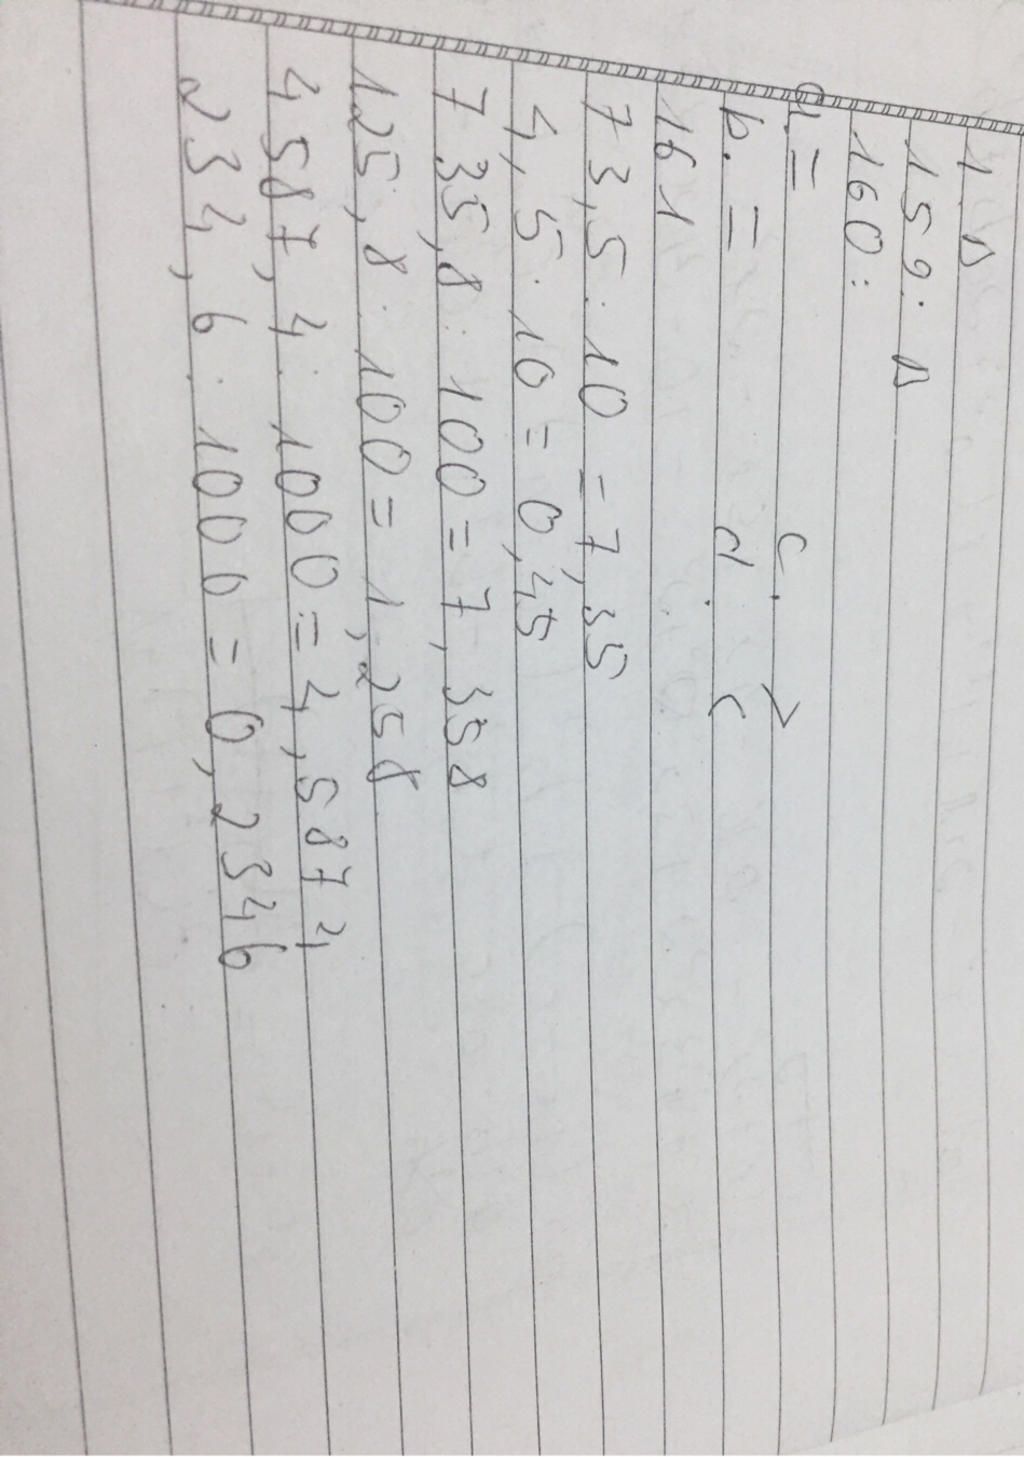 1 D
159: D
160:
a. = c. >
b. = d. <
161
73,5 : 10 = 7,35
4,5 : 10 = 0,45
735,8 : 100 = 7,358
125,8 : 100 = 1,258
4587,4 : 1000 = 4,5874
234,6 : 1000 = 0,2346